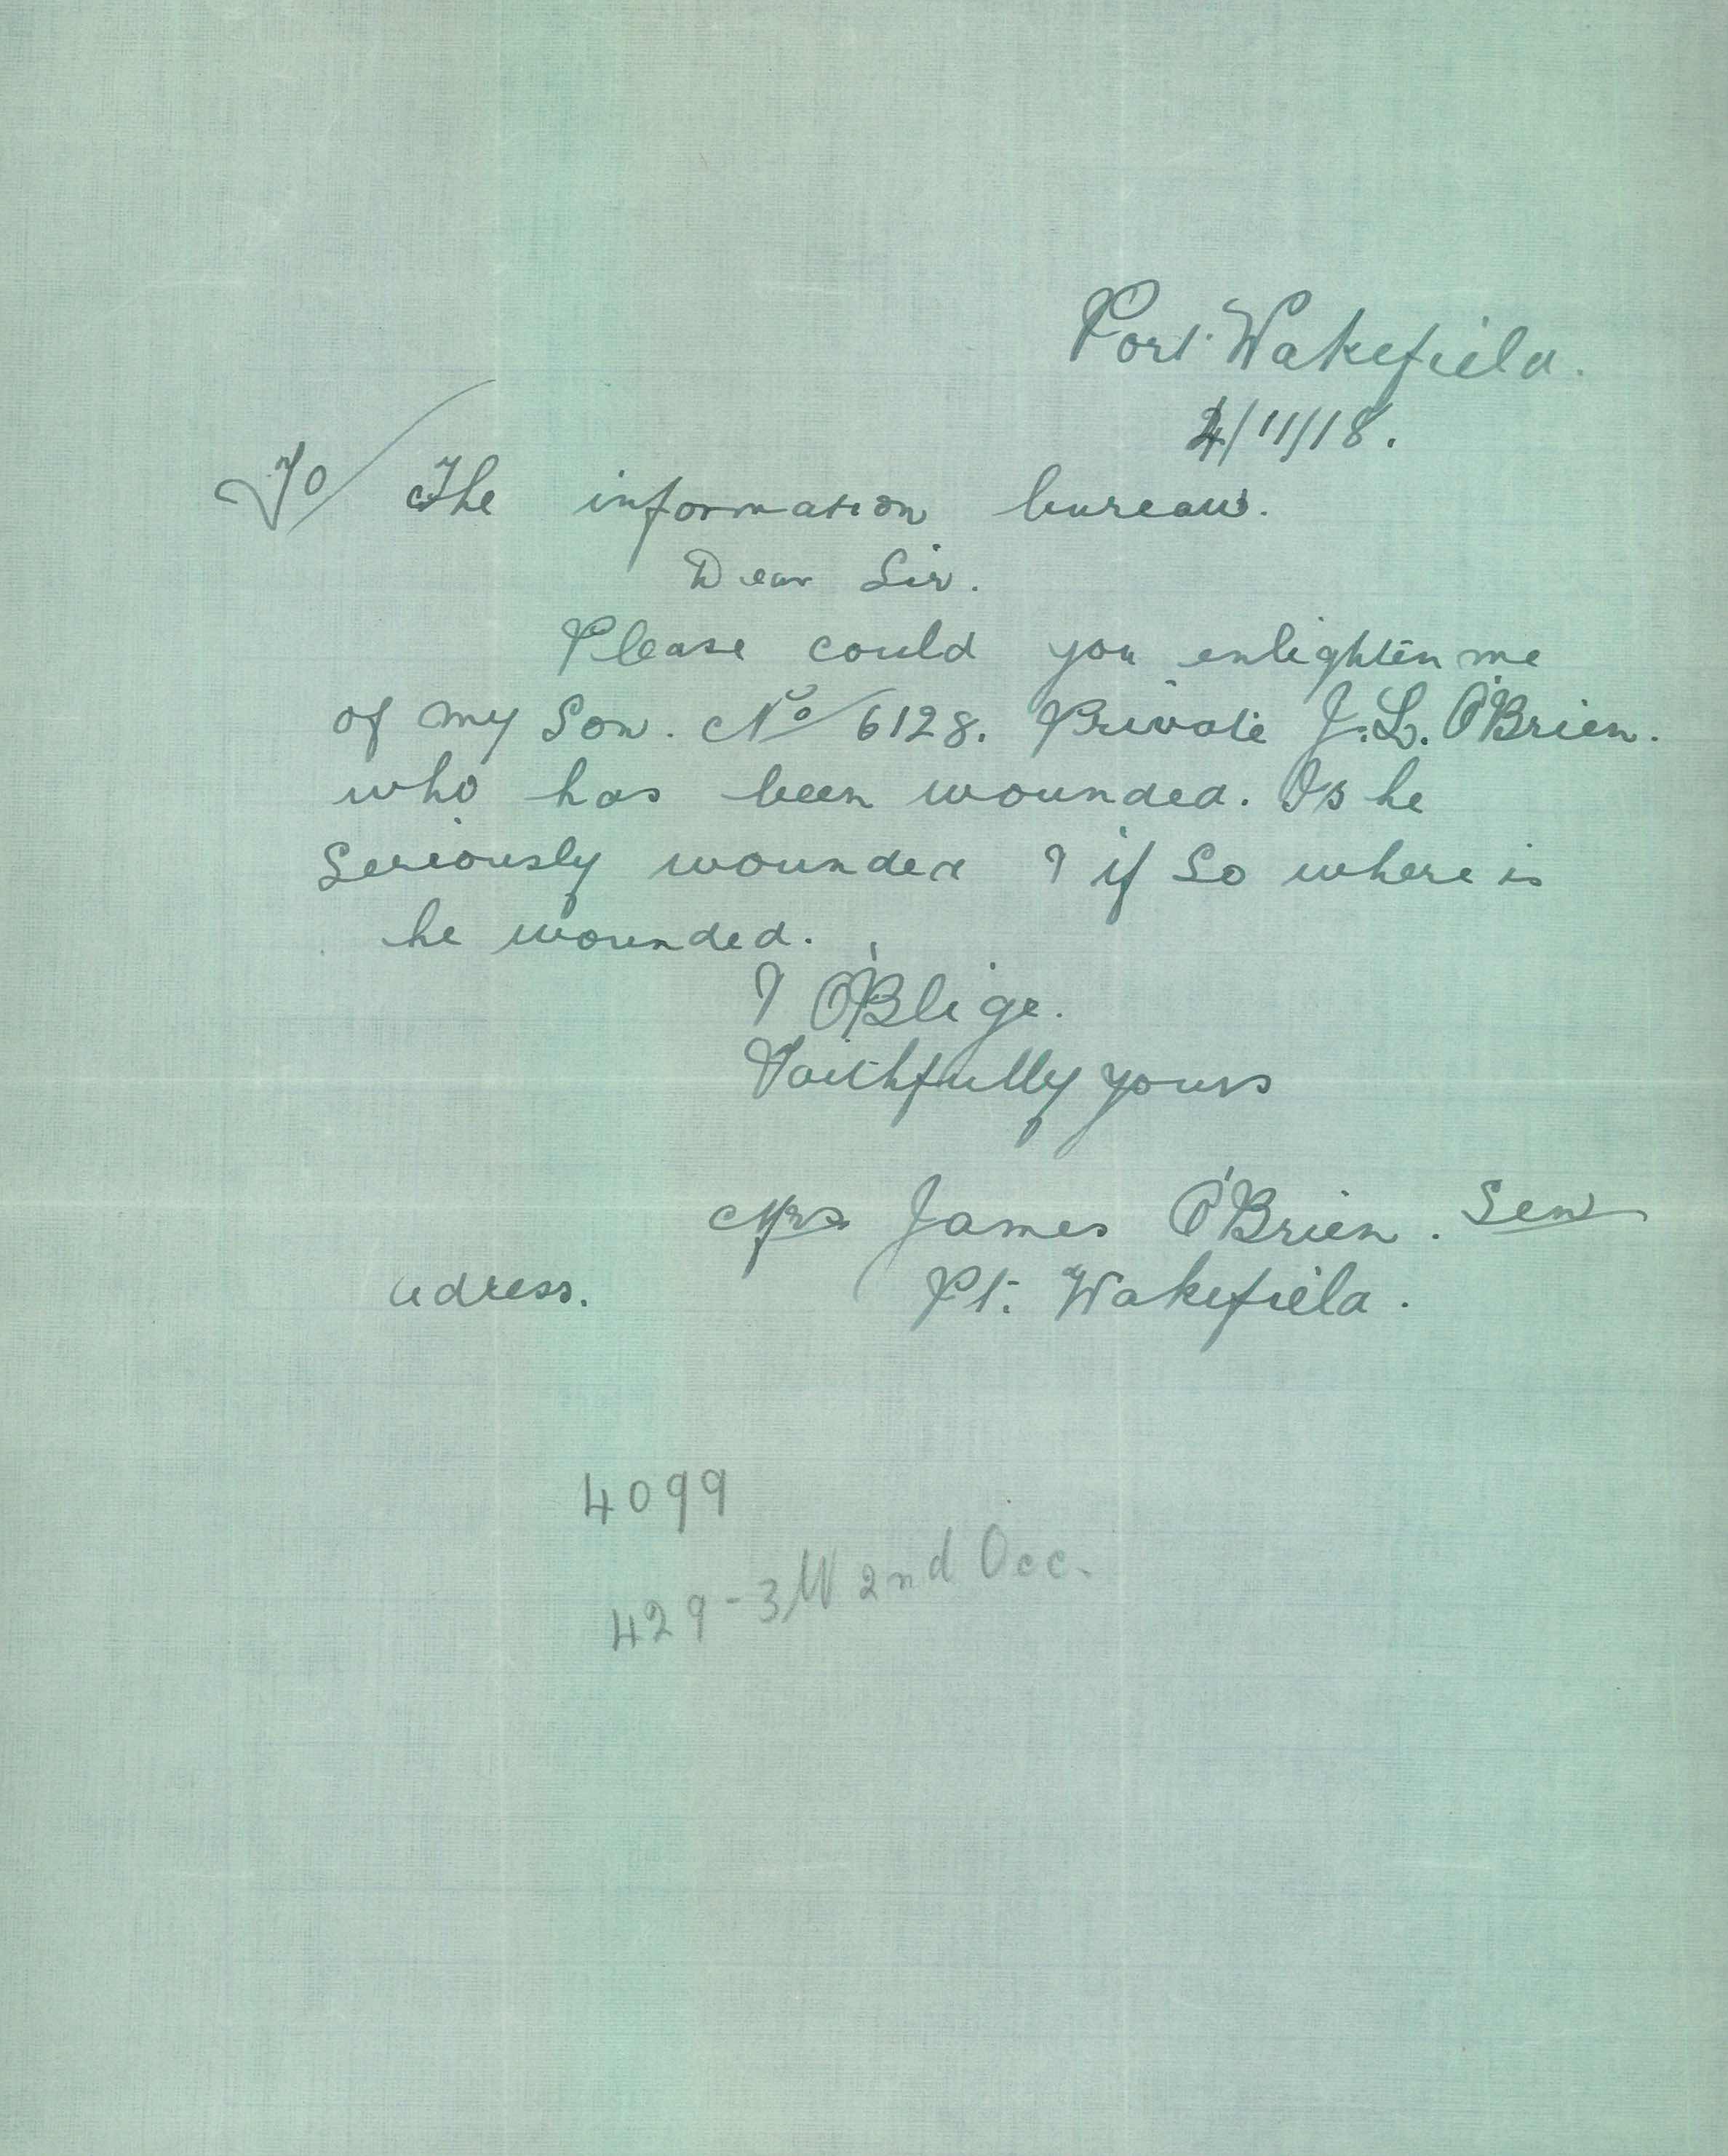 Port. Wakefield.
4/11/18.
To/ The information bureau.
Dear Sir.
Please could you enlighten me
of my Son. No/ 6128. Private J. L. O'Brien.
who has been wounded. Is he
Seriously wounded ? if So where is
he wounded.
? O'Blige.
Faithfully yours
Mrs James O'Brien. Sen
adress. Pt. Wakefield.
4099
429-3W 2nd Occ.